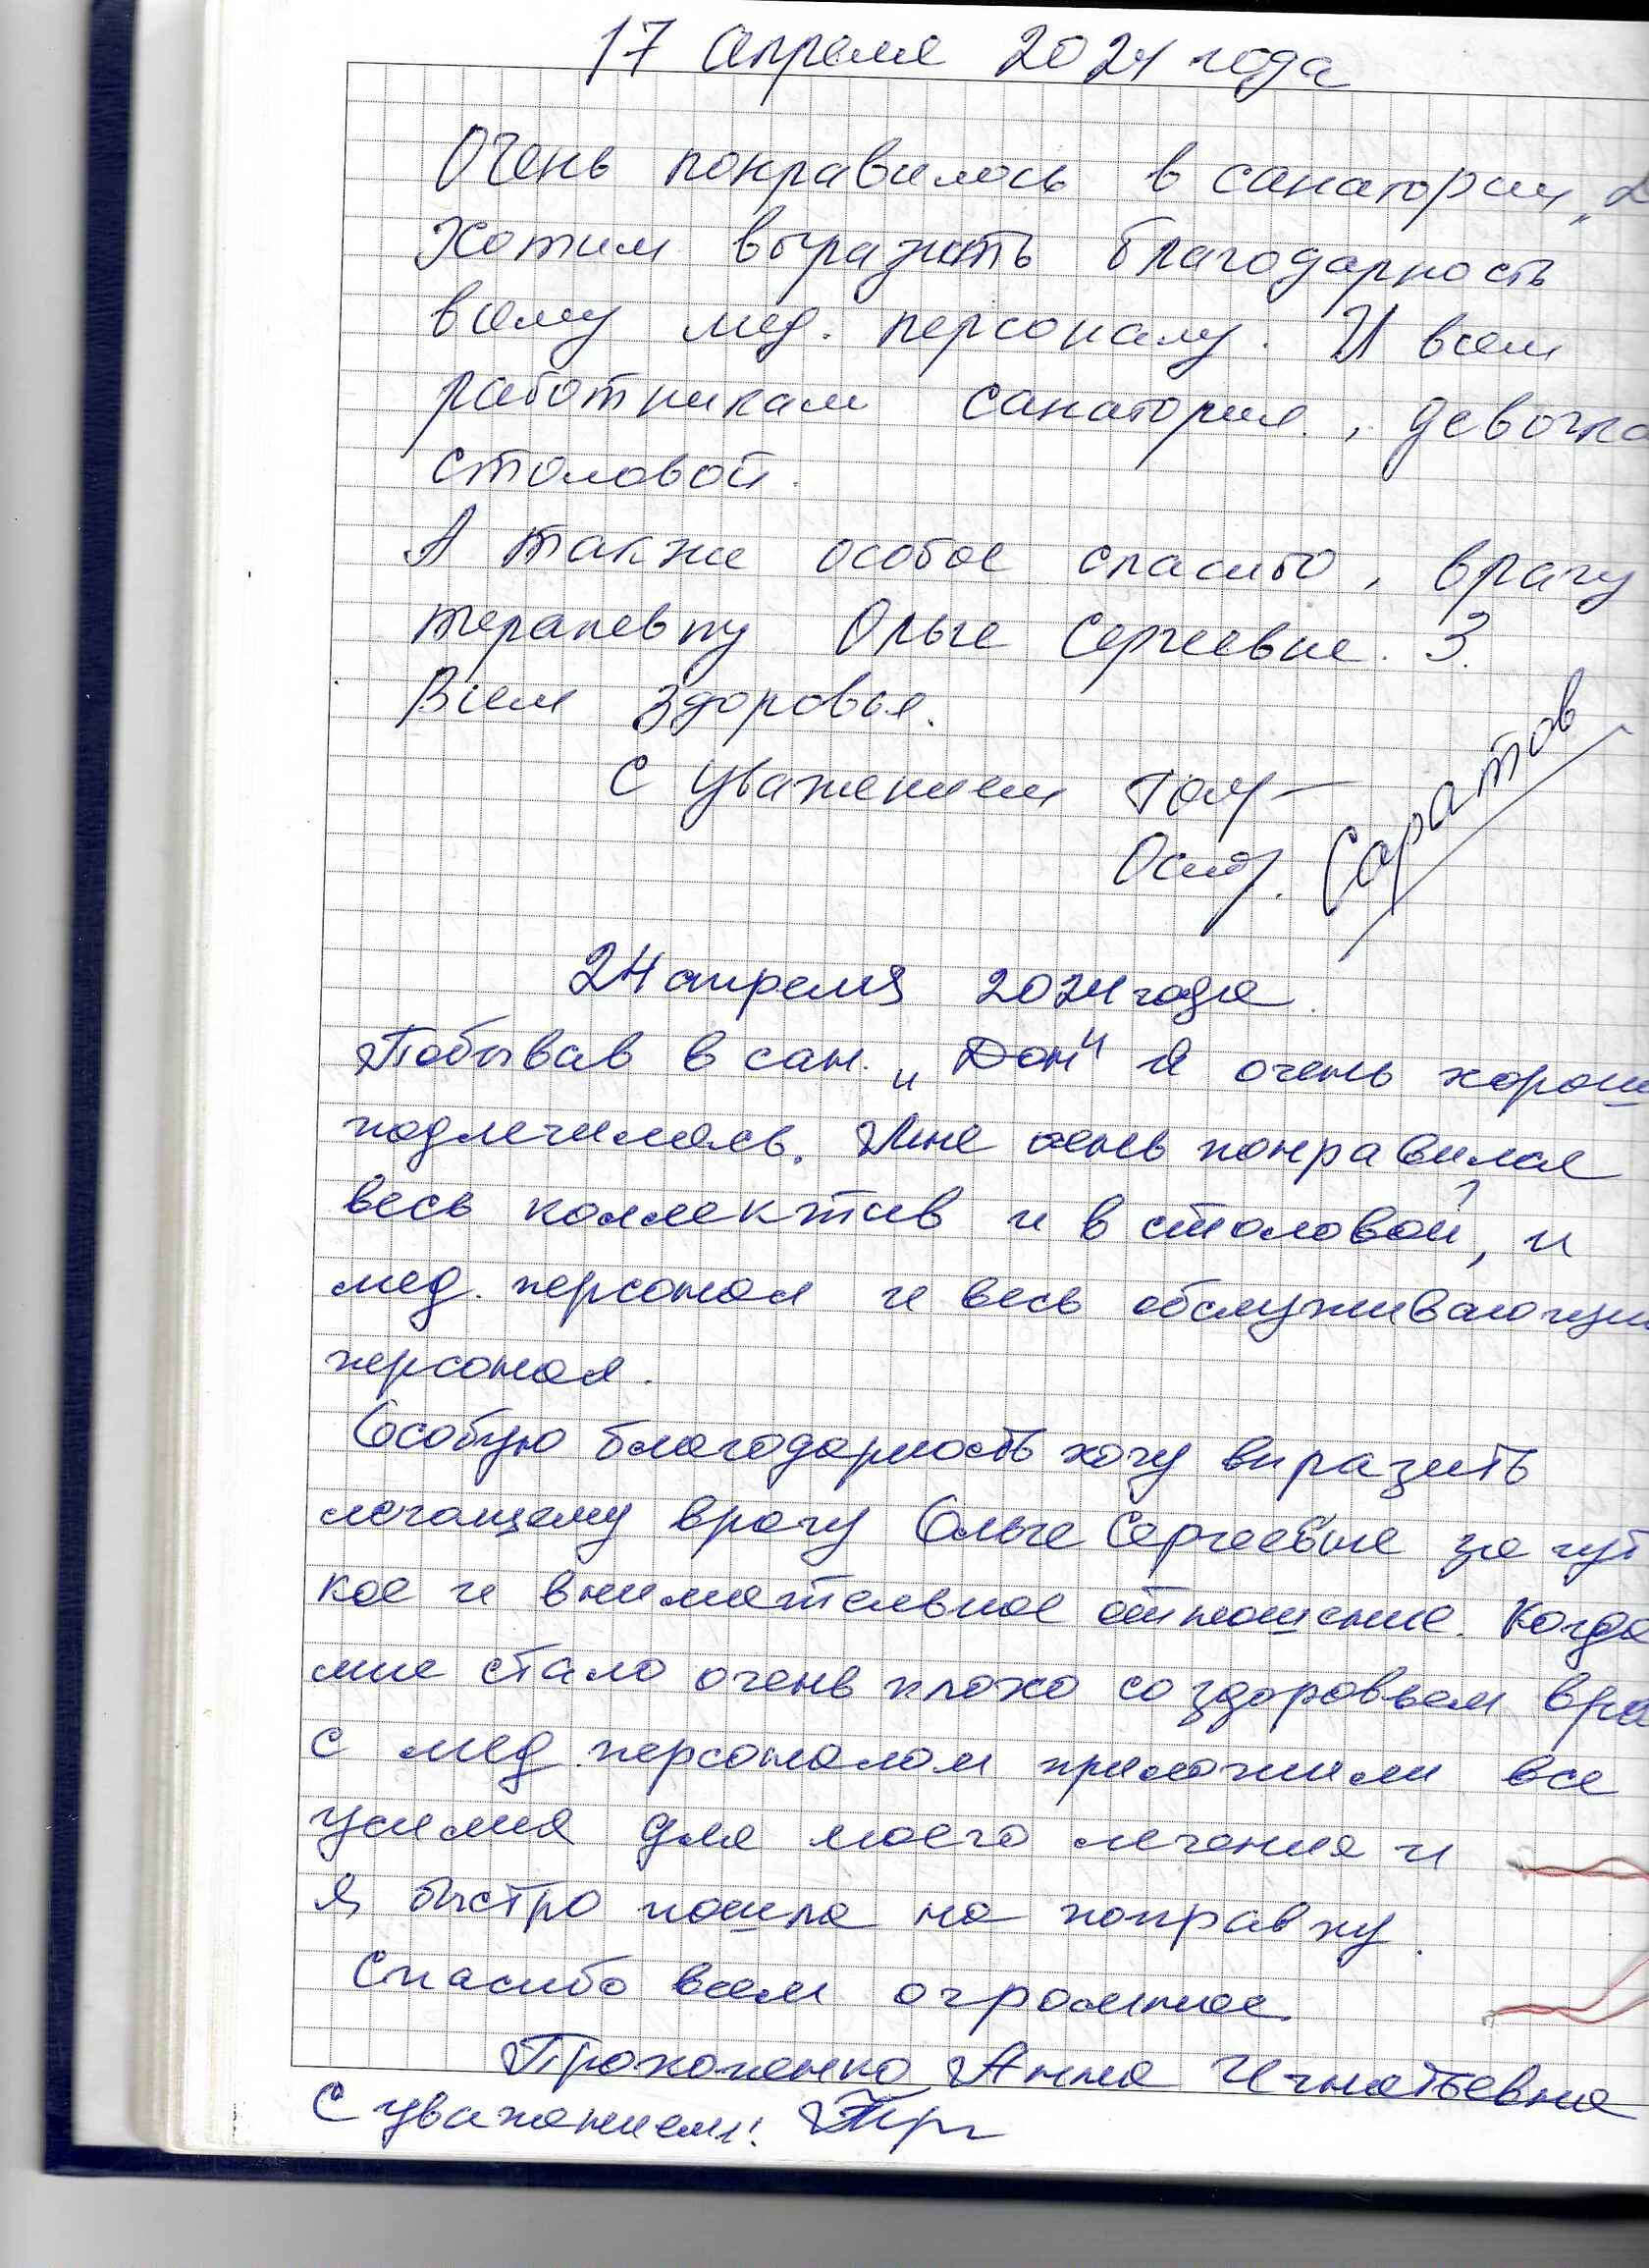 17 апреля 2024 года
Очень понравилось в санатории „Д
Хотим выразить благодарность
всему мед. персоналу. И всем
работникам санатория, девочка
столовой.
А также особое спасибо, врачу
терапевту Ольге Сергеевне. З.
Всем здоровья.
С уважением
Саратов
24 апреля 2024 года.
Побывав в сан. „Дон" я очень хорош
подлечилась. Мне очень понравился
весь коллектив и в столовой, и
мед. персонал и весь обслуживающий
персонал.
Особую благодарность хочу выразить
лечащему врачу Ольге Сергеевне за чут
кое и внимательное отношение. Когда
мне стало очень плохо со здоровьем вра
с мед. персоналом приложили все
усилия для моего лечения и
я быстро пошла на поправку.
Спасибо всем огромное
Прокопенко Анна Игнатьевна
С уважением!